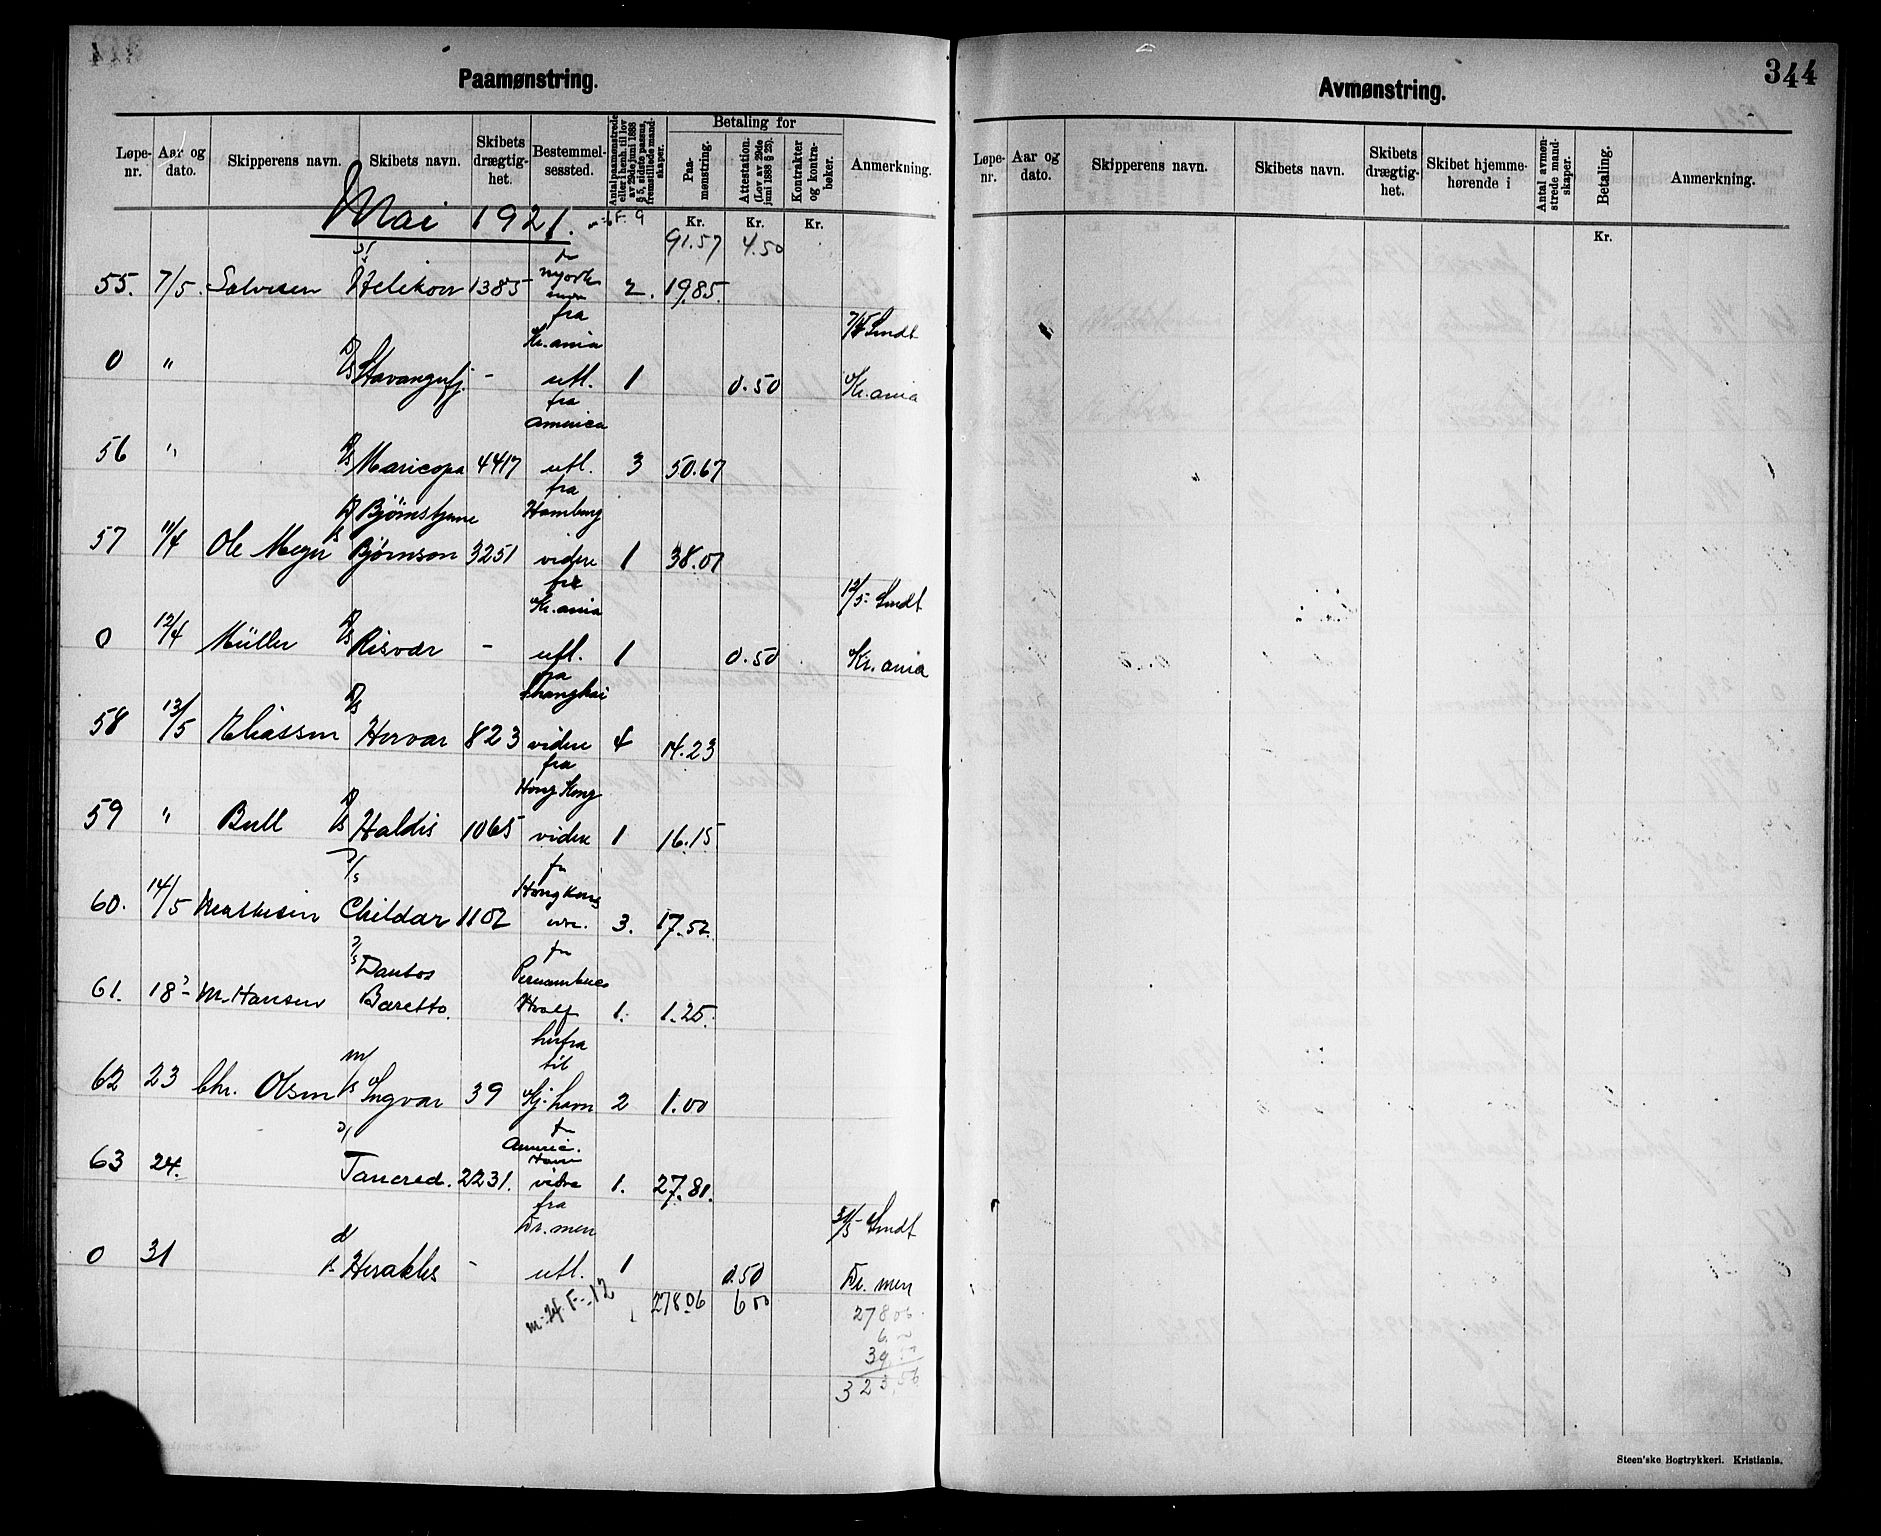 344
Paamønstring.
Løpe-nr. Aar og dato. Skipperens navn. Skibets navn. Skibets drægtighet. Bestemmelsessted. Antal paamønstrede eller i henh. til lov av 29de juni 1888 § 5, sidste passus, fremstillede mandskaper. Betaling for Paamønstring. Attestation. (Lov av 29de juni 1888 § 25). Kontrakter og kontrabøker. Anmerkning.
Mai 1921. F. 9 Kr. Kr. Kr.
91.57 4.50
55. 7/5. Salvesen Helikon 1385 2. 19.85.
fra Kr.ania
0 " D/S Stavangerfj. - utl. 1 0.50 Kr.ania
fra America
56 " D/S Maricopa 4417 utl. 3 50.67
fra Hamburg
57 11/4 Ole Meyer D/S Bjørnstjerne Bjørnson 3251 videre 1 38.01
fra Kr.ania 12/5- Sendt
0 12/4 Müller D/S Risvær - utl. 1 0.50 Kr.ania
fra Shanghai
58 13/5 Eliassen D/S Hervar 823 videre 4 14.23
fra Hong Kong
59 " Bull D/S Haldis 1065 videre 1 16.15
fr Hongkong
60. 14/5 Mathisen D/S Childar 1102 3. 17.52.
fr Pernambuco
61. 18 M. Hansen Baretto. 1. 1.25.
herfra til
62 23 Chr. Olsen M/S Ingvar 39 Kj.havn 2 1.00
fr Americ.
63 24. Tancred. 2231. vidre 1. 27.81.
fra Dr.men 31/5- Sendt
0 31 d/s Herakles - utl. 1 0.50 Dr. men
m-24. F-12 278.06 6.00 278.06
6.
39.
323,56
Avmønstring.
Løpe-nr. Aar og dato. Skipperens navn. Skibets navn. Skibets drægtighet. Skibet hjemmehørende i Antal avmønstrede mandskaper. Betaling. Anmerkning.
Kr.
Steen'ske Bogtrykkeri. Kristiania.